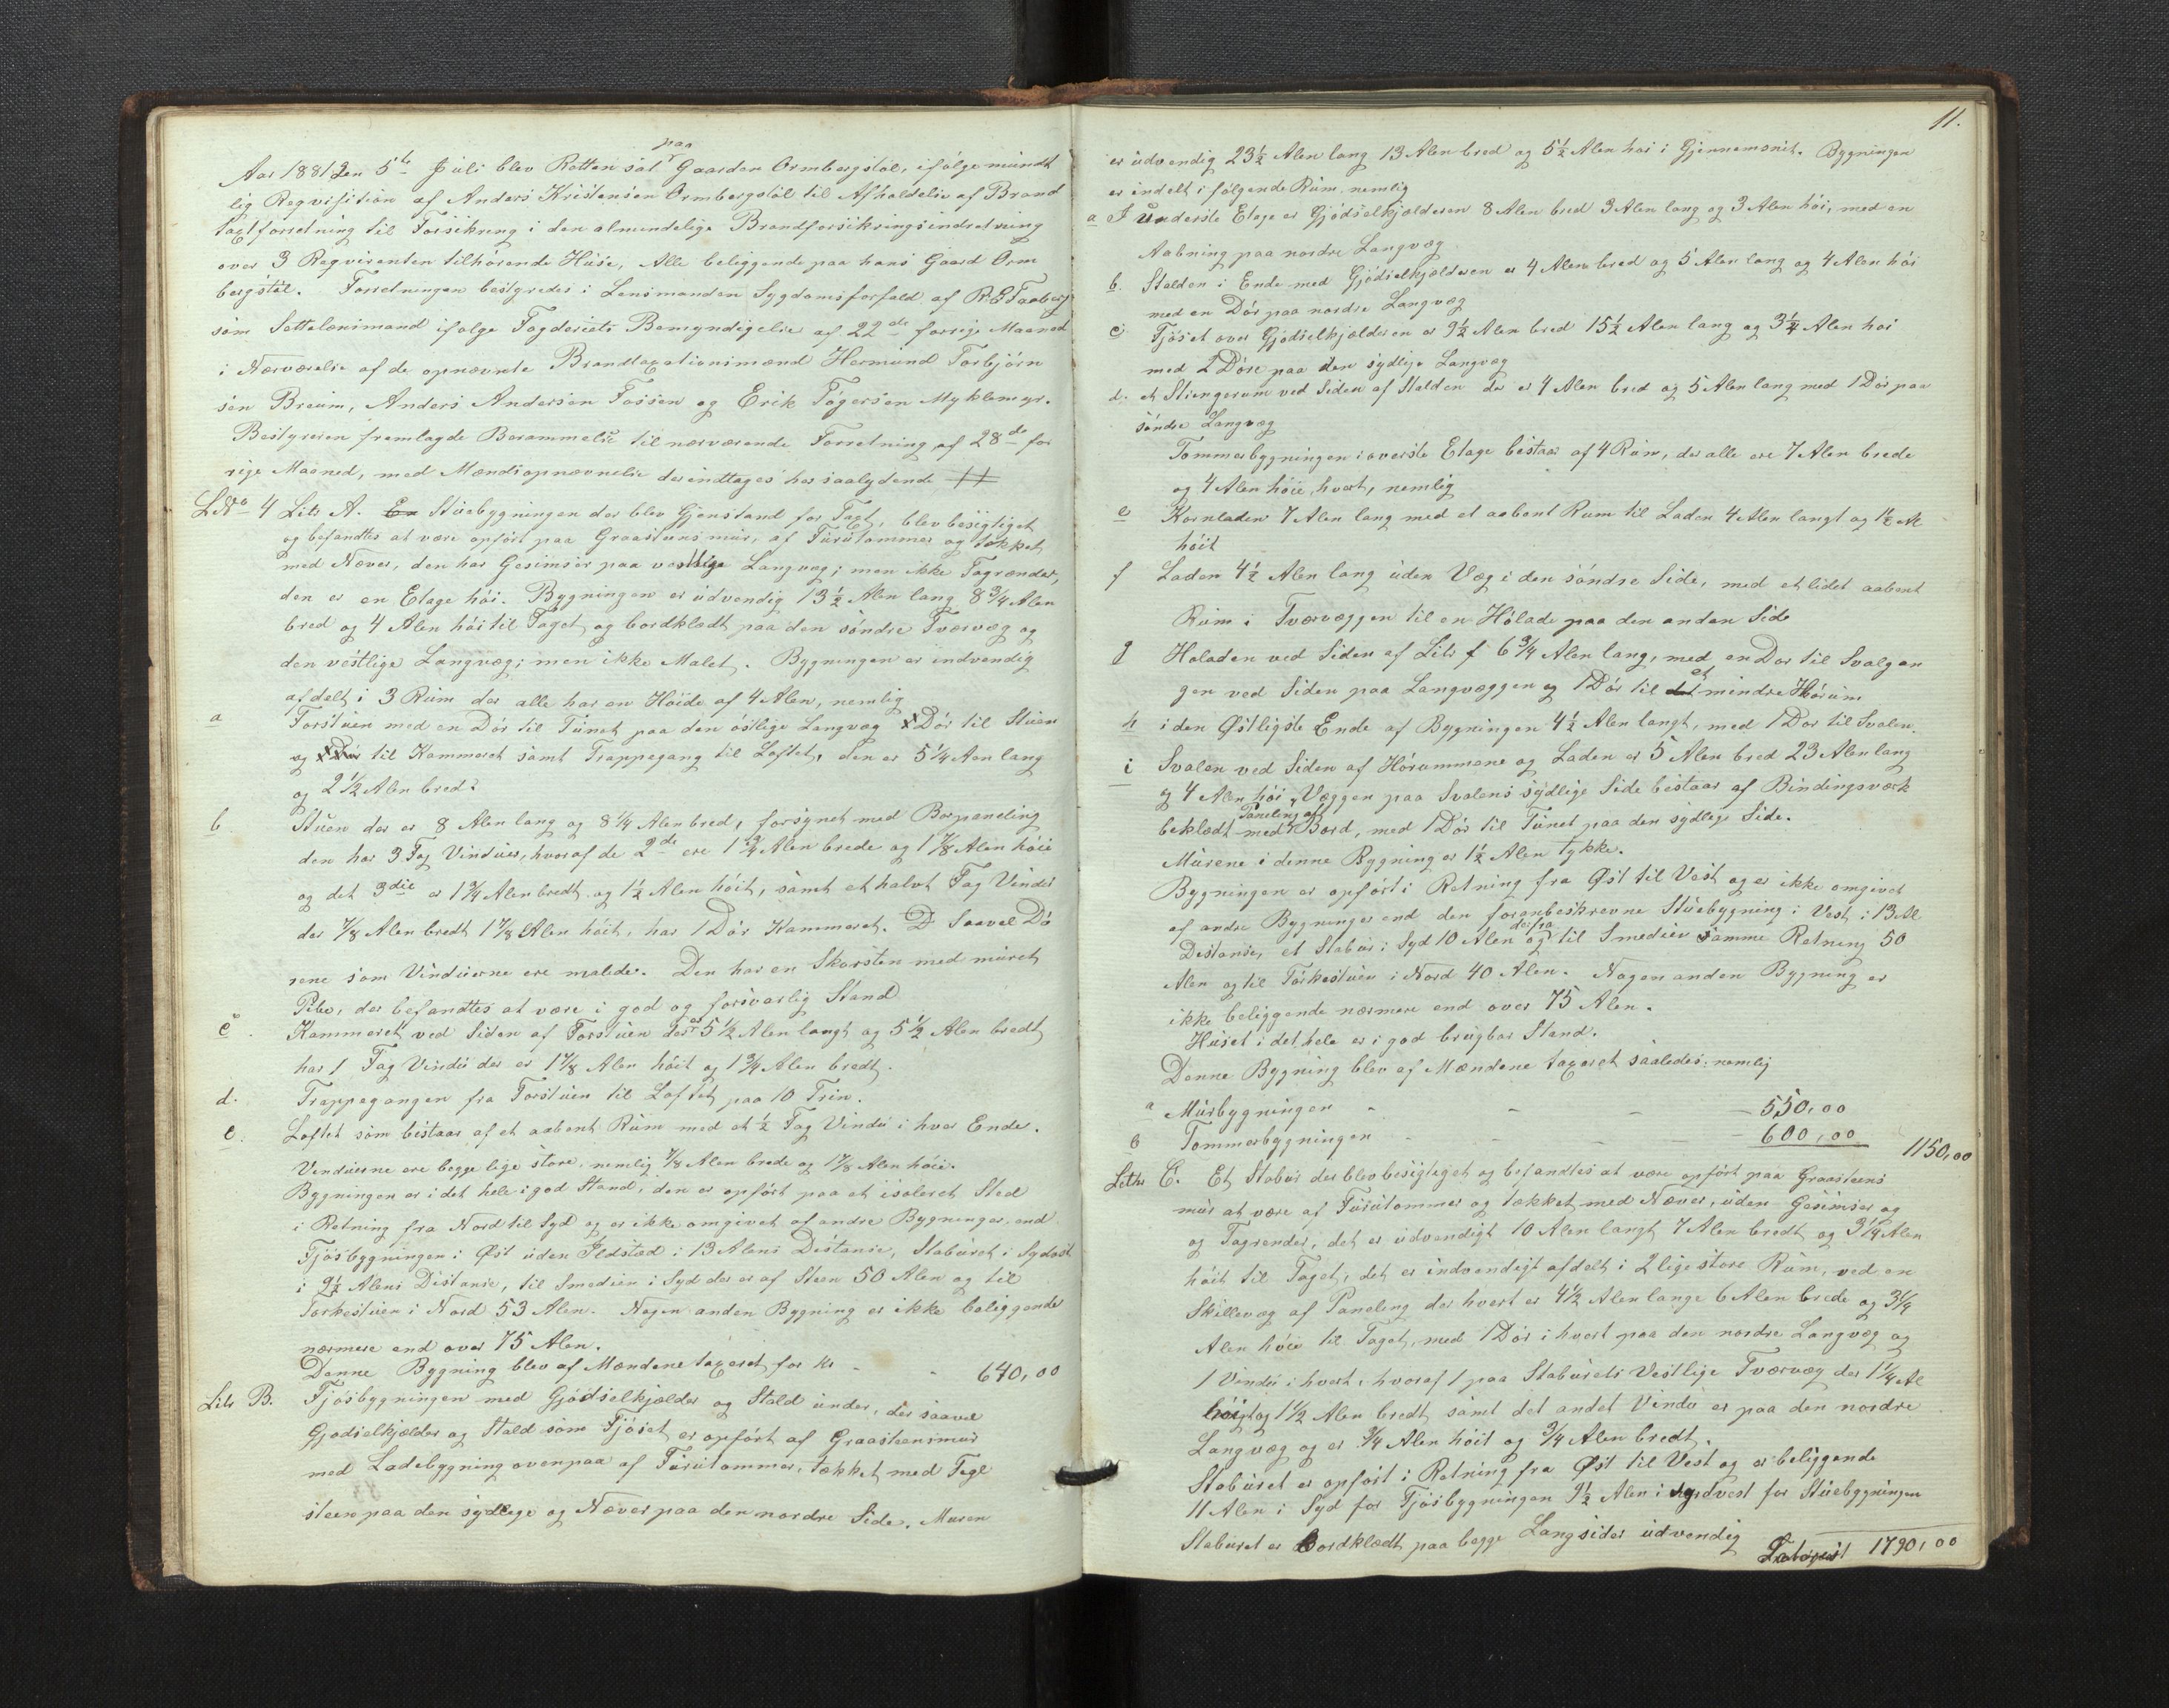 paa
Aar 1881 den 5te Juli blev Retten sat Gaarden Ormbergstöl, ifölge mündt
lig Reqvisition af Anders Kristensen Ormbergstöl til Afholdelse af Brand
taxtforretning til Forsikring i den almindelige Brandforsikringsindretning
over 3 Reqvirenten tilhörende Hüse, Alle beliggende paa hans Gaard Orm
bergstöl. Forretningen bestyredes i Lensmandens Sygdomsforfald af R. G. Faaberg
som Settelensmand ifölge Fogderiets Bemyndigelse af 22de forrige Maaned
i Nærværelse af de opnævnte Brandtaxationsmænd Hermünd Torbjörn
sen Breüm, Anders Andersen Fossen og Erik Tögersen Myklemyr.
Bestyreren fremlagde Berammelse til nærværende Forretning af 28de for
rige Maaned, med Mændsopnævnelse der indtages her saalydende ++
L.No 4 Litr A. En Stüebygningen der blev Gjenstand for Taxt, blev besigtiget
og befandtes at være opfört paa Graasteensmür, af Fürütömmer og tækket
med Næver, den har Gesimser paa vestlige Langvæg; men ikke Tagrender,
den er en Etage höi. Bygningen er üdvendig 13½ Alen lang 8¾ Alen
bred og 4 Alen höi til Taget og bordklædt paa den söndre Tværvæg og
den vestlige Langvæg; men ikke Malet. Bygningen er indvendig
afdelt i 3 Rüm der alle har en Höide af 4 Alen, nemlig
a Forstüen med en Dör til Tünet paa den östlige Langvæg 1 Dör til Stüen
og 1 Dör til Kammeret samt Trappegang til Loftet, den er 5¼ Alen lang
og 2½ Alen bred
b Stüen der er 8 Alen lang og 8¼ Alen bred, forsynet med Borpaneling
den har 3 Fag Vindüer, hvoraf de 2de ere 1¾ Alen brede og 1⅞ Alen höie
og det 3die er 1¾ Alen bredt og 1½ Alen höit, samt et halvt Fag Vindü
der ⅞ Alen bredt 1⅞ Alen höit, har 1 Dör Kammeret. D Saavel Dö
rene som Vindüerne ere malede. Den har en Skorsten med müret
Pibe, der befandtes at være i god og forsvarlig Stand
c Kammeret ved Siden af Forstüen der er 5½ Alen langt og 5½ Alen bredt
har 1 Fag Vindü der er 1⅞ Alen höit og 1¾ Alen bredt.
d. Trappegangen fra Forstüen til Loftet paa 10 Trin.
e. Loftet som bestaar af et aabent Rüm med et ½ Fag Vindü i hver Ende.
Vindüerne ere begge lige store, nemlig ⅞ Alen brede og 1⅞ Alen höie.
Bygningen er i det hele i god Stand, den er opfört paa et isoleret Sted
i Retning fra Nord til Syd og er ikke omgivet af andre Bygninger end
Fjösbygningen i Öst üden Ildsted i 13 Alens Distanse, Stabüret i Sydost
i 9½ Alens Distanse, til Smedien i Syd der er af Steen 50 Alen og til
Törkestüen i Nord 53 Alen. Nogen anden Bygning er ikke beliggende
nærmere end over 75 Alen.
Denne Bygning blev af Mændene taxeret for Kr - - 640,00
Litr B. Fjösbygningen med Gjödselkjælder og Stald ünder, der saavel
Gjödselkjælder og Stald som Fjöset er opfört af Graasteensmür
med Ladebygning ovenpaa af Fürütömmer, tækket med Tegl
steen paa den sydlige og Næver paa den nordre Side. Muren
11.
er üdvendig 23½ Alen lang 13 Alen bred og 5½ Alen höi i Gjennemsnit. Bygningen
er indelt i fölgende Rüm, nemlig
a I ünderste Etage er Gjödselkjælderen 8 Alen bred 3 Alen lang og 3 Alen höi, med en
Aabning paa nordre Langvæg
b. Stalden i Ende med Gjödselkjælderen er 4 Alen bred og 5 Alen lang og 4 Alen höi
med en Dör paa nordre Langvæg
c Fjöset over Gjödselkjælderen er 9½ Alen bred 15½ Alen lang og 3¼ Alen höi
med 2 Döre paa den sydlige Langvæg
d. et Stængerum ved Siden af Stalden der er 4 Alen bred og 5 Alen lang med 1 Dör paa
söndre Langvæg
Tömmerbygningen i överste Etage bestaar af 4 Rüm, der alle ere 7 Alen brede
og 4 Alen höie, hvert, nemlig
e Kornladen 7 Alen lang med et aabent Rum til Laden 4 Alen langt og 1½ Al
höit
f Laden 4½ Alen lang üden Væg i den söndre Side, med et lidet aabent
Rüm i Tværvæggen til en Hölade paa den anden Side
g Höladen ved Siden af Litr f 6¾ Alen lang, med en Dör til Svalgan
gen ved Siden paa Langvæggen og 1 Dör til et mindre Hörüm
h i den Östligste Ende af Bygningen 4½ Alen langt, med 1 Dör til Svalen.
i Svalen ved Siden af Hörummene og Laden er 5 Alen bred 23 Alen lang
og 4 Alen höi, Væggen paa Svalens sydlige Side bestaar af Bindingsværk
beklædt med Paneling af Bord, med 1 Dör til Tünet paa den sydlige Side.
Mürene i denne Bygning er 1½ Alen tykke.
Bygningen er opfört i Retning fra Öst til Vest og er ikke omgivet
af andre Bygninger end den foranbeskrevne Stüebygning i Vest i 13 Al
Distanse, et Stabür i Syd 10 Alen derfra og til Smedien samme Retning 50
Alen og til Törkestüen i Nord 40 Alen. Nogen anden Bygning er
ikke beliggende nærmere end over 75 Alen.
Hüset i det hele er i god brügbar Stand.
Denne Bygning blev af Mændene taxeret saaledes: nemlig
a Mürbygningen - - - - 550,00
b Tömmerbygningen - - - - 600,00 1150,00
Littr C. Et Stabür der blev besigtiget og befandtes at være opfört paa Graasteens
mür at være af Fürütömmer og tækket med Næver, üden Gesimser og
og Tagrender, det er üdvendigt 10 Alen langt 7 Alen bredt og 3¼ Alen
höit til Taget, det er indvendigt afdelt i 2 lige store Rüm, ved en
Skillevæg af Paneling der hvert er 4½ Alen lange 6 Alen brede og 3¼
Alen höie til Taget, med 1 Dör i hvert paa den nordre Langvæg og
1 Vindü i hvert, hvoraf 1 paa Stabürets Vestlige Tværvæg der 1¼ Al
höit og 1½ Alen bredt samt det andet Vindü er paa den nordre
Langvæg og er ¾ Alen höit og ¾ Alen bredt.
Stabüret er opfört i Retning fra Öst til Vest og er beliggende
11 Alen i Syd for Fjösbygningen 9½ Alen i sydvest for Stüebygningen
Stabüret er bordklædt paa begge Langsider üdvendig
Latüs 1790,00